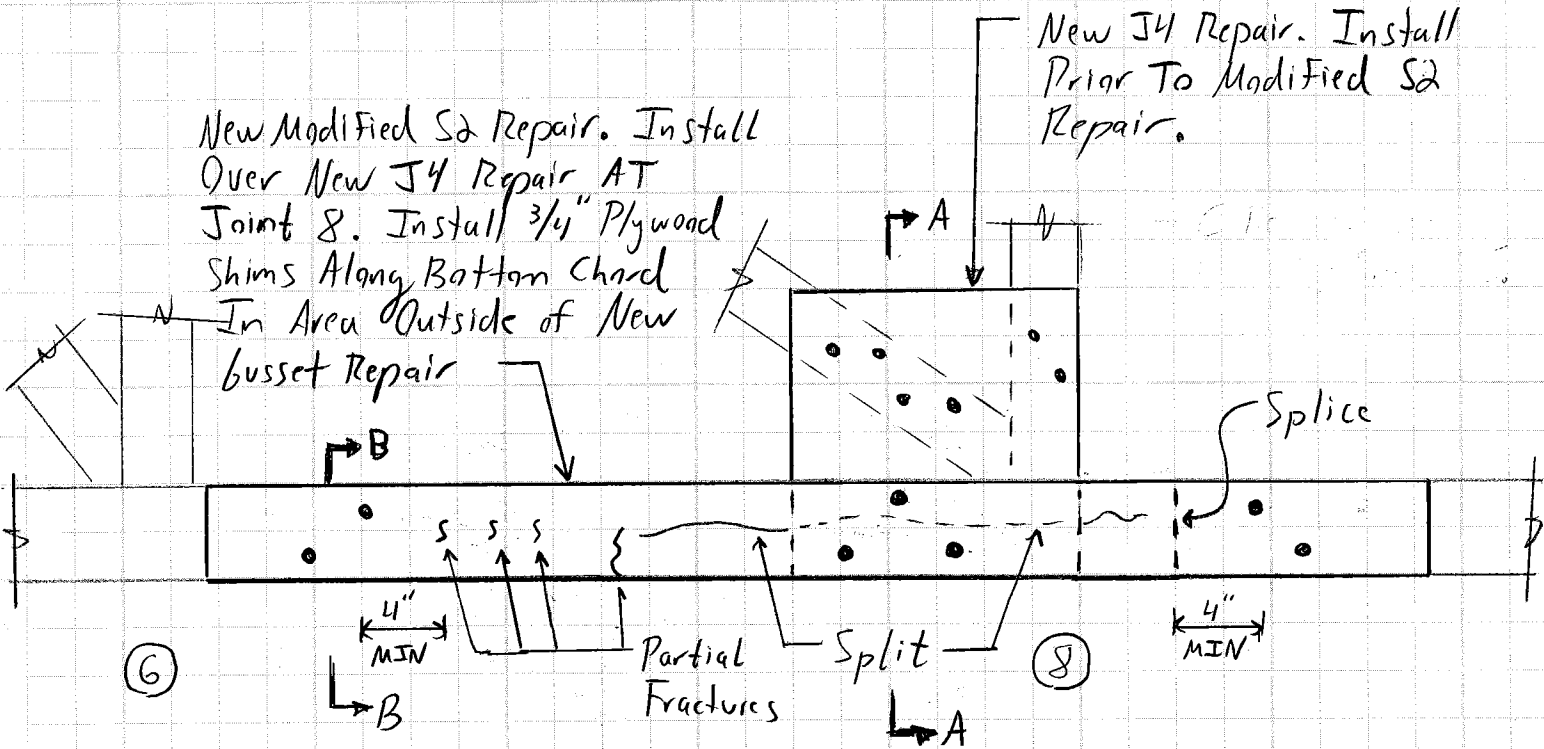 New J4 Repair. Install
Prior To Modified S2
Repair.
New Modified S2 Repair. Install
Over New J4 Repair AT
Joint 8. Install 3/4" Plywood
Shims Along Bottom Chord
In Area Outside of New
Gusset Repair
A
B
Splice
4"
MIN
4"
MIN
6
Partial
Fractures
Split
8
B
A